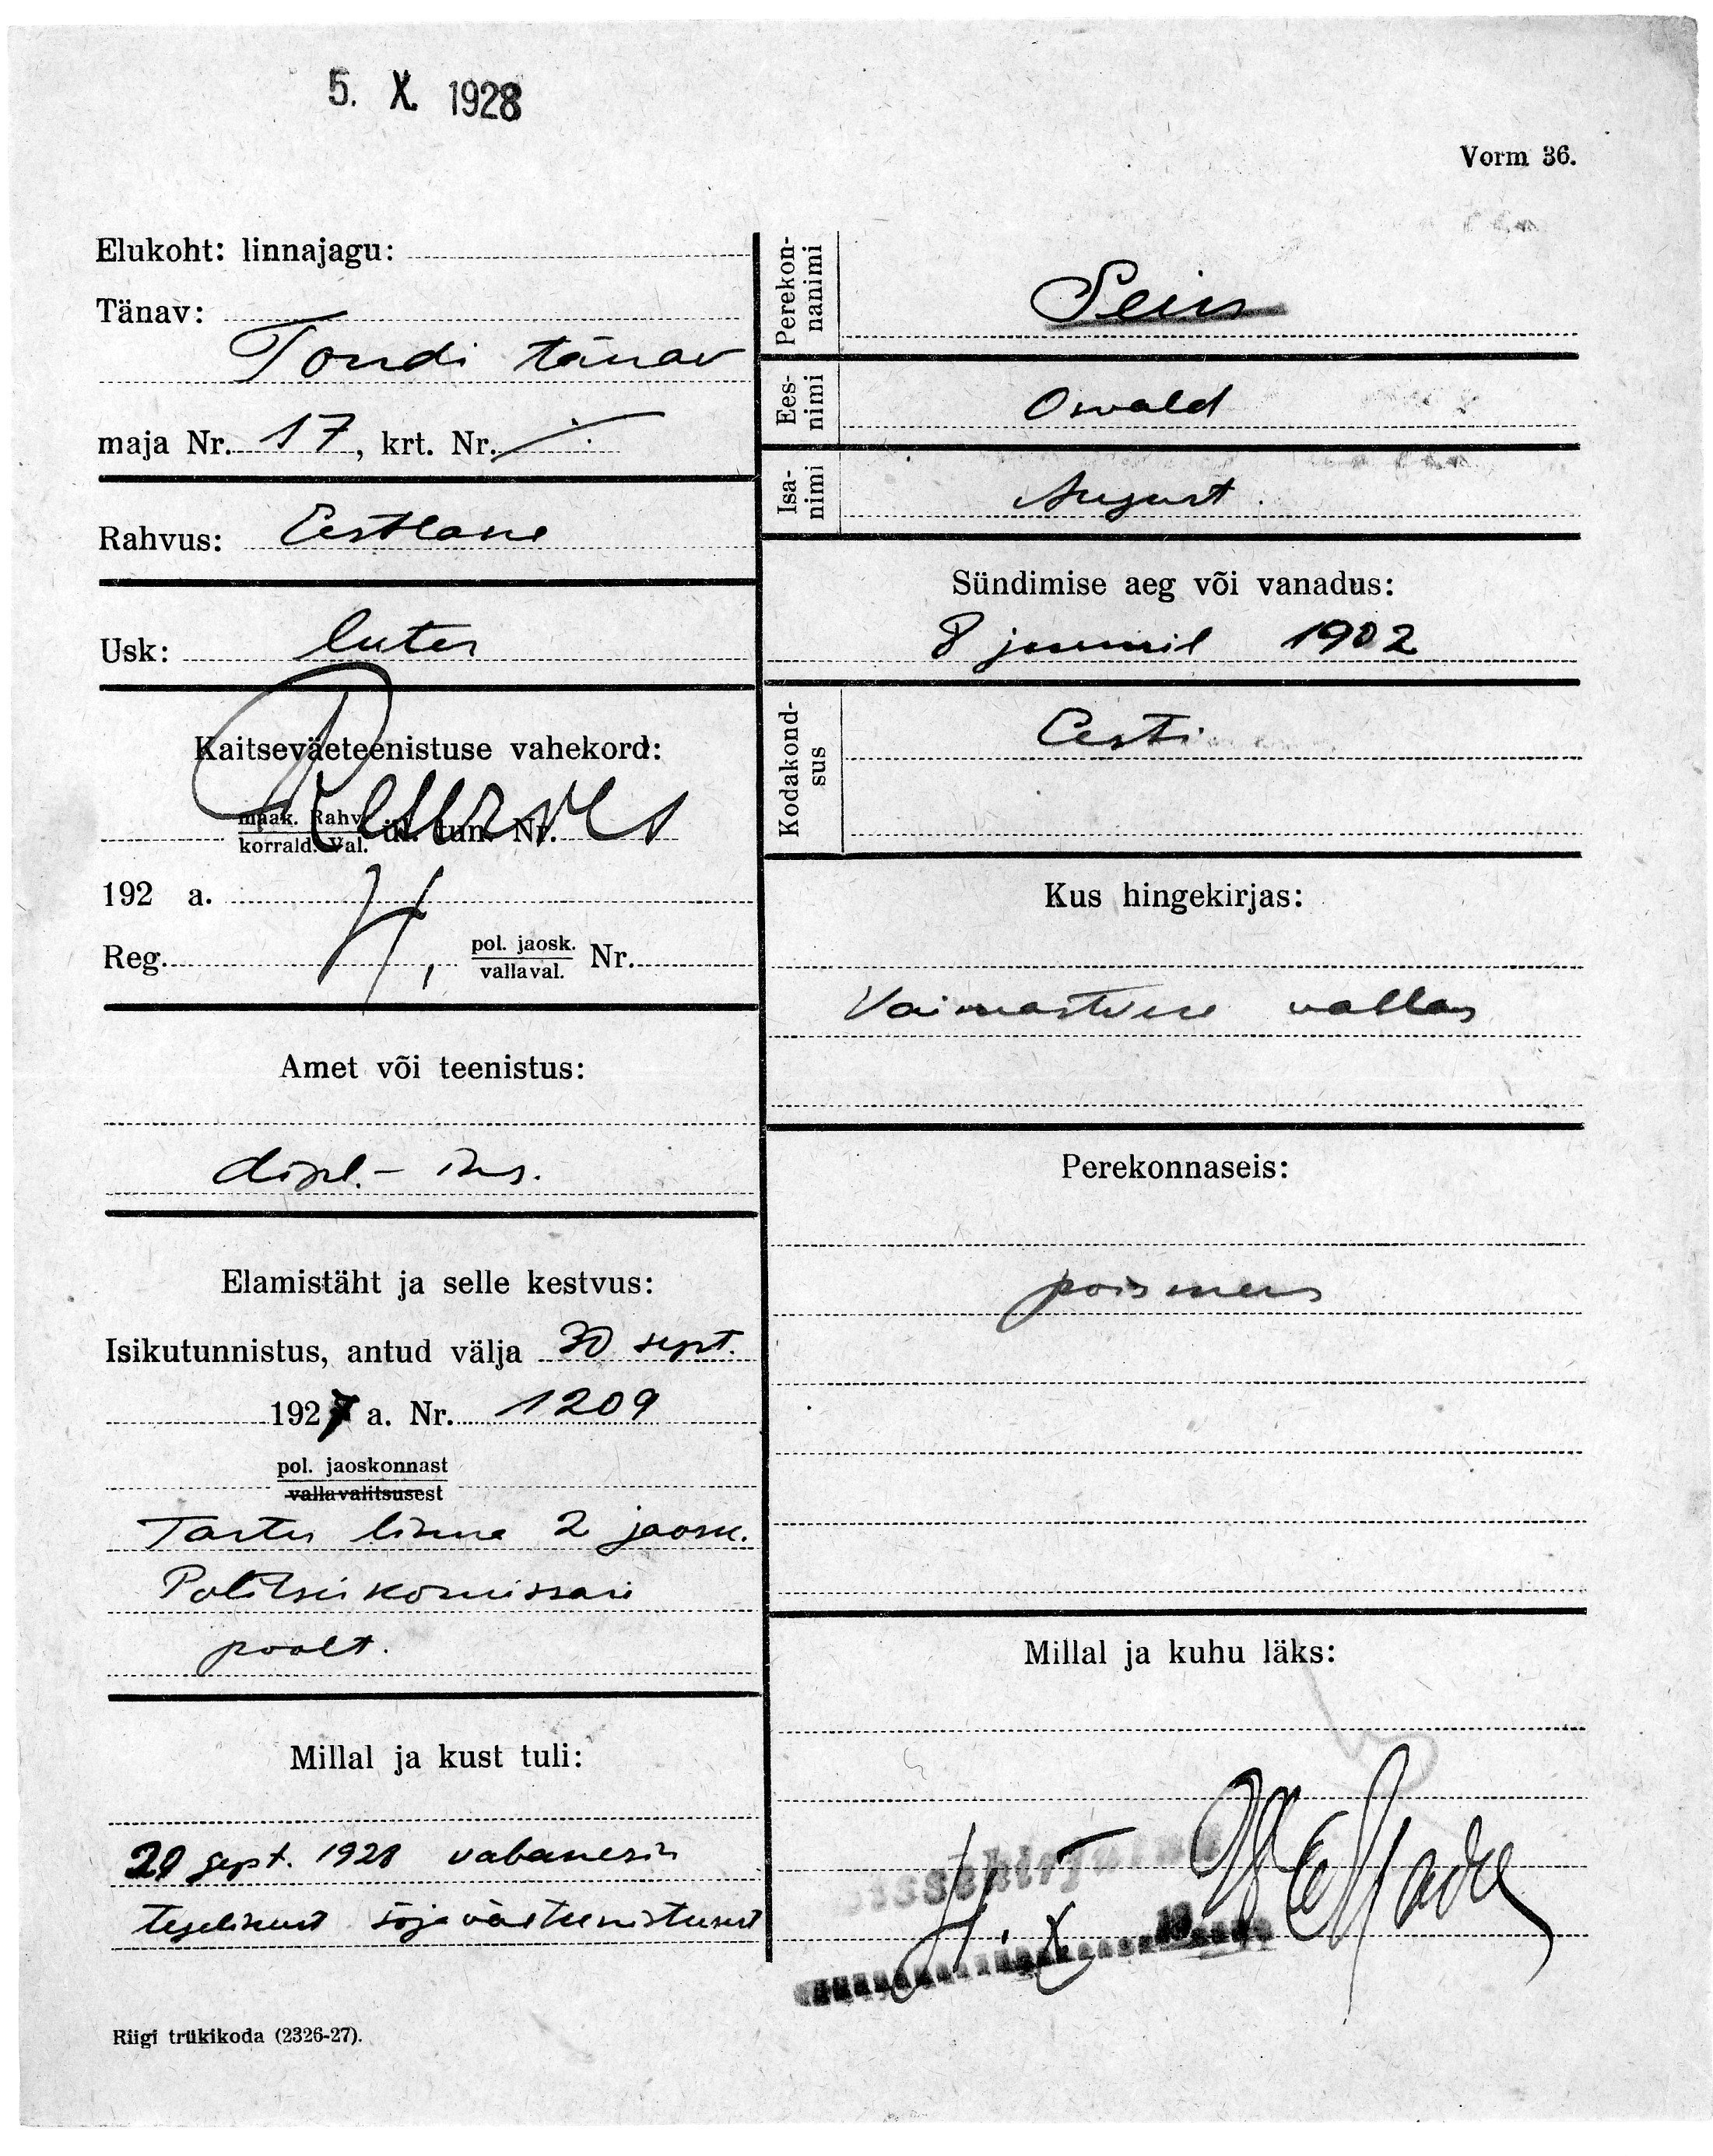 5. X. 1928
Vorm 36.
Elukoht: linnajagu:
Tänav:
Tondi tänav
maja Nr. 17, krt. Nr.
Rahvus: Eestlane
Usk: luter
Kaitseväeteenistuse vahekord:
maak. Rahv.
korrald. Val. ül. tun. Nr.
192 a.
Reg. , pol. jaosk.
vallaval. Nr.
Amet või teenistus:
dipl.- ins.
Elamistäht ja selle kestvus:
Isikutunnistus, antud välja 30 sept.
1927 a. Nr. 1209
pol. jaoskonnast
vallavalitsusest
Tartu linna 2 jaosk.
Politseikomissari
poolt.
Millal ja kust tuli:
29 sept. 1928 vabanesin
tegelikust sõjaväeteenistusest
Riigi trükikoda (2326-27).
Perekon-
nanimi
Ees-
nimi
Oswald
Isa-
nimi
August
Sündimise aeg või vanadus:
8 juunil 1902
Kodakond-
sus
Eesti
Kus hingekirjas:
Vaimastvere vallas
Perekonnaseis:
poismees
Millal ja kuhu läks: